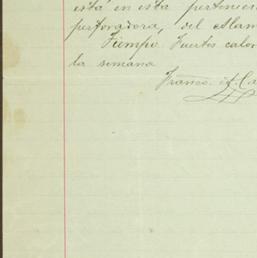 está en esta pertenien
perforadora, del Alam
Tiempo. Fuertes calor
la semana
Franco. A. Ca